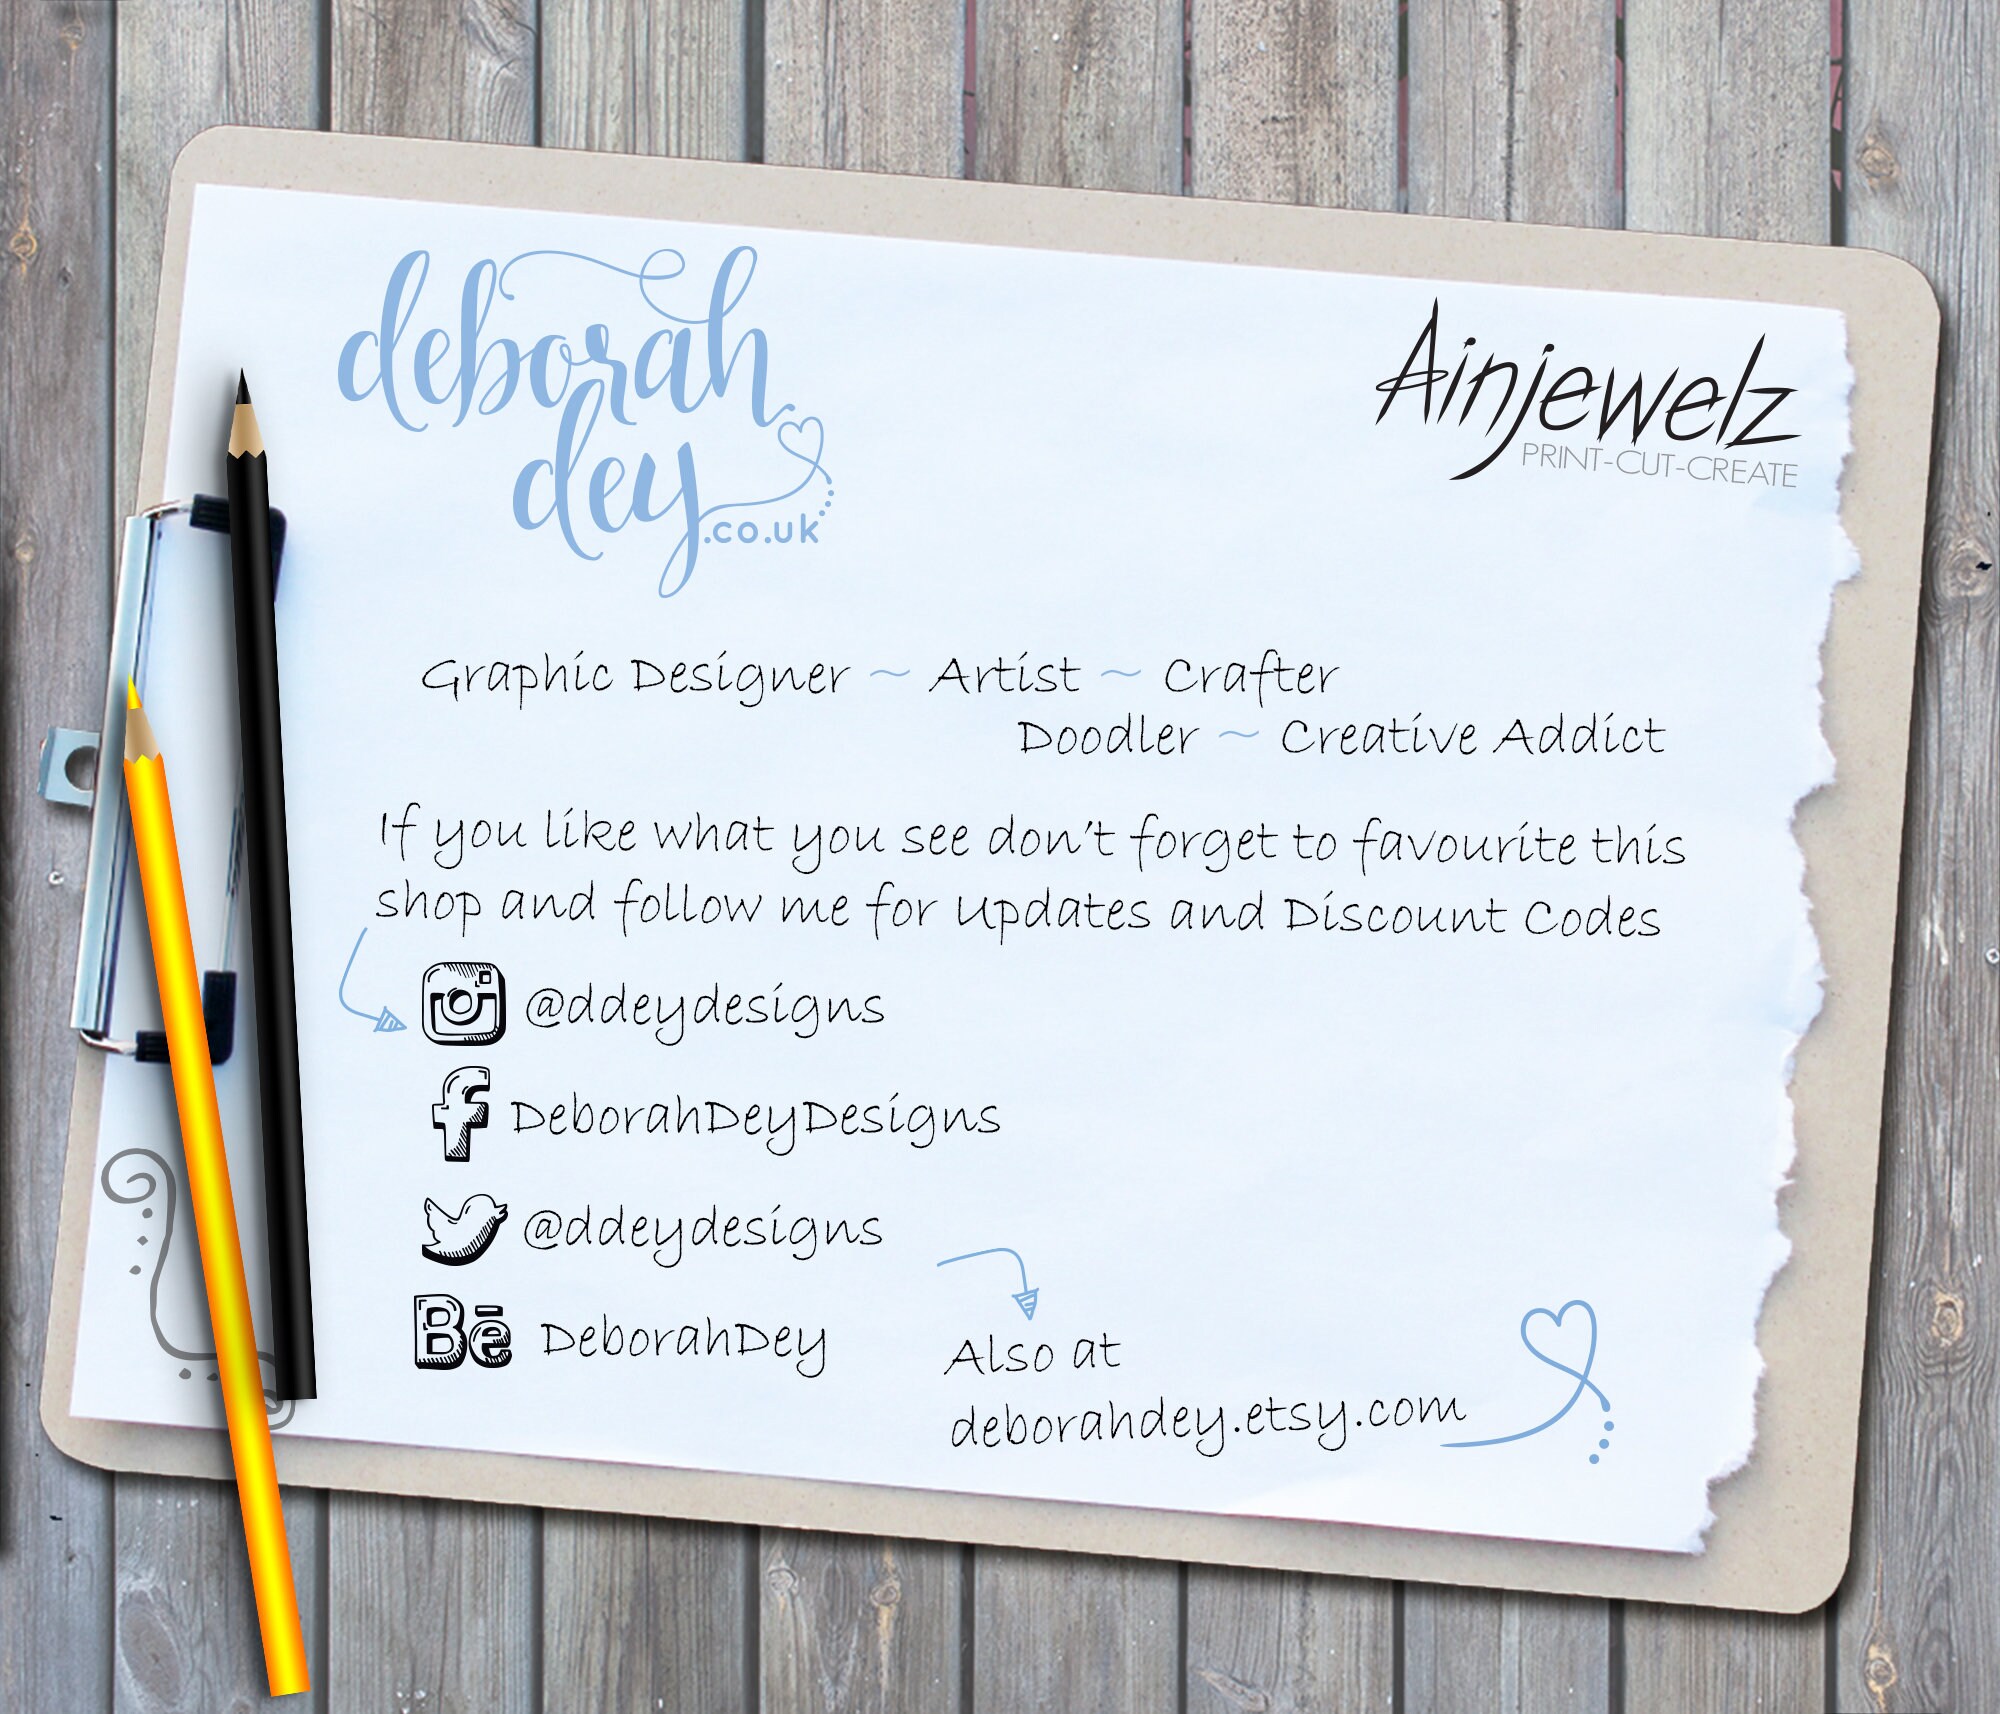 deborah
dey
.co.uk
Ainjewelz
PRINT-CUT-CREATE
Graphic Designer ~ Artist ~ Crafter
Doodler ~ Creative Addict
If you like what you see don't forget to favourite this
shop and follow me for Updates and Discount Codes
@ddeydesigns
f DeborahDeyDesigns
@ddeydesigns
Bē DeborahDey
Also at
deborahdey.etsy.com